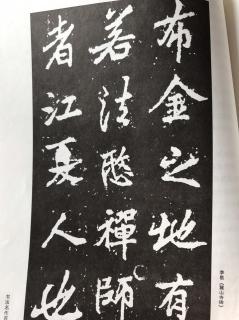 李邕《麓山寺碑》
布金之地有
若法愍禪師
者江夏人也
书法名作